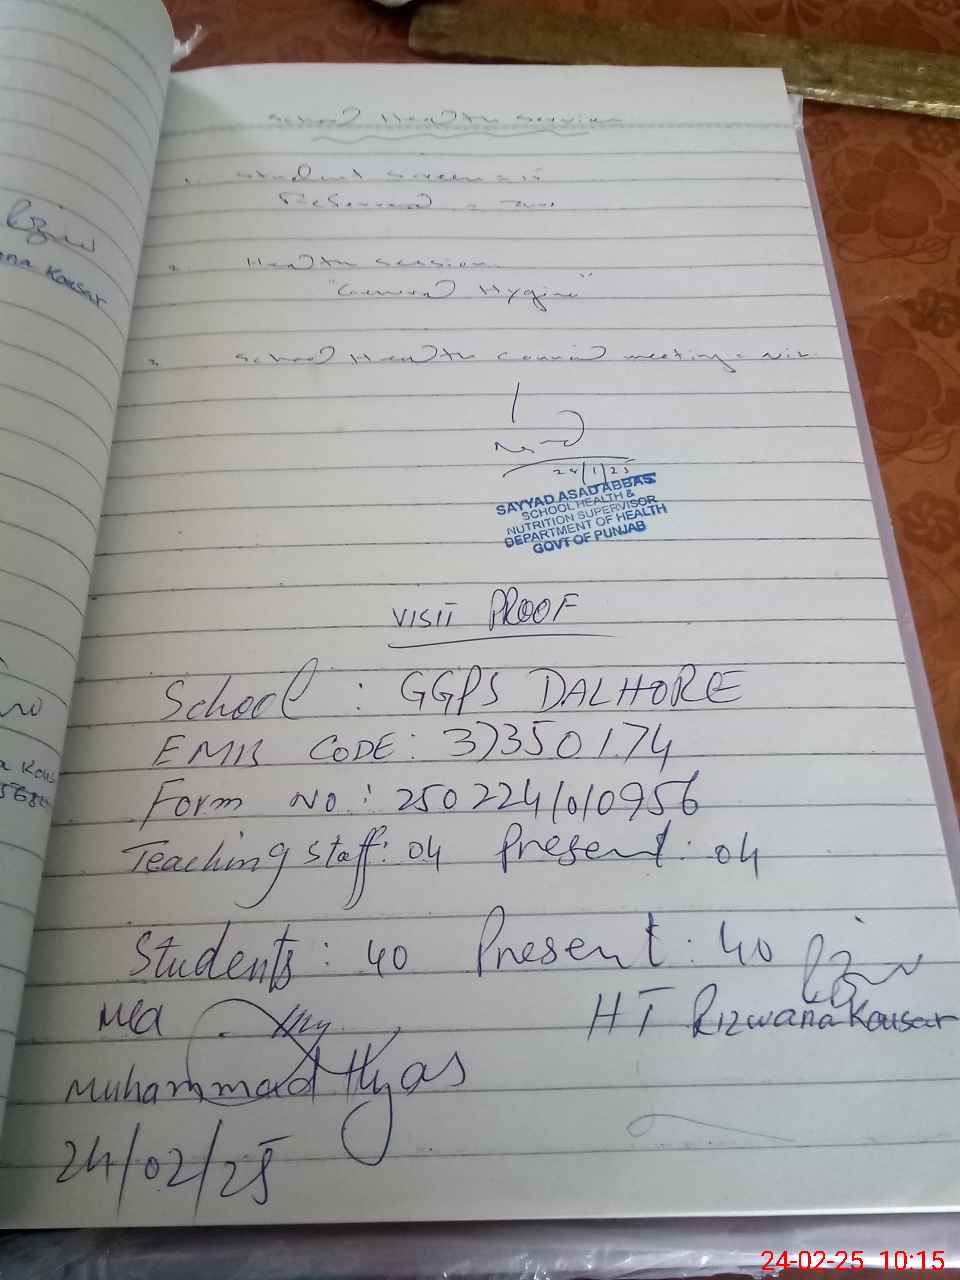 School Health Services
1. Student Screen = 15
Referred =
2. Health Session
"General Hygine"
3. School Health Council meeting = Nil.
24/1/25
SAYYAD ASAD ABBAS
SCHOOL HEALTH &
NUTRITION SUPERVISOR
DEPARTMENT OF HEALTH
GOVT OF PUNJAB
VISIT PROOF
School : GGPS DALHORE
EMIS CODE: 37350174
Form No: 250224/010956
Teaching staff: 04 Present: 04
Students: 40 Present: 40
MEA
HT Rizwana Kousar
Muhammad Ilyas
24/02/25
ana Kousar
a Kous
24-02-25 10:15